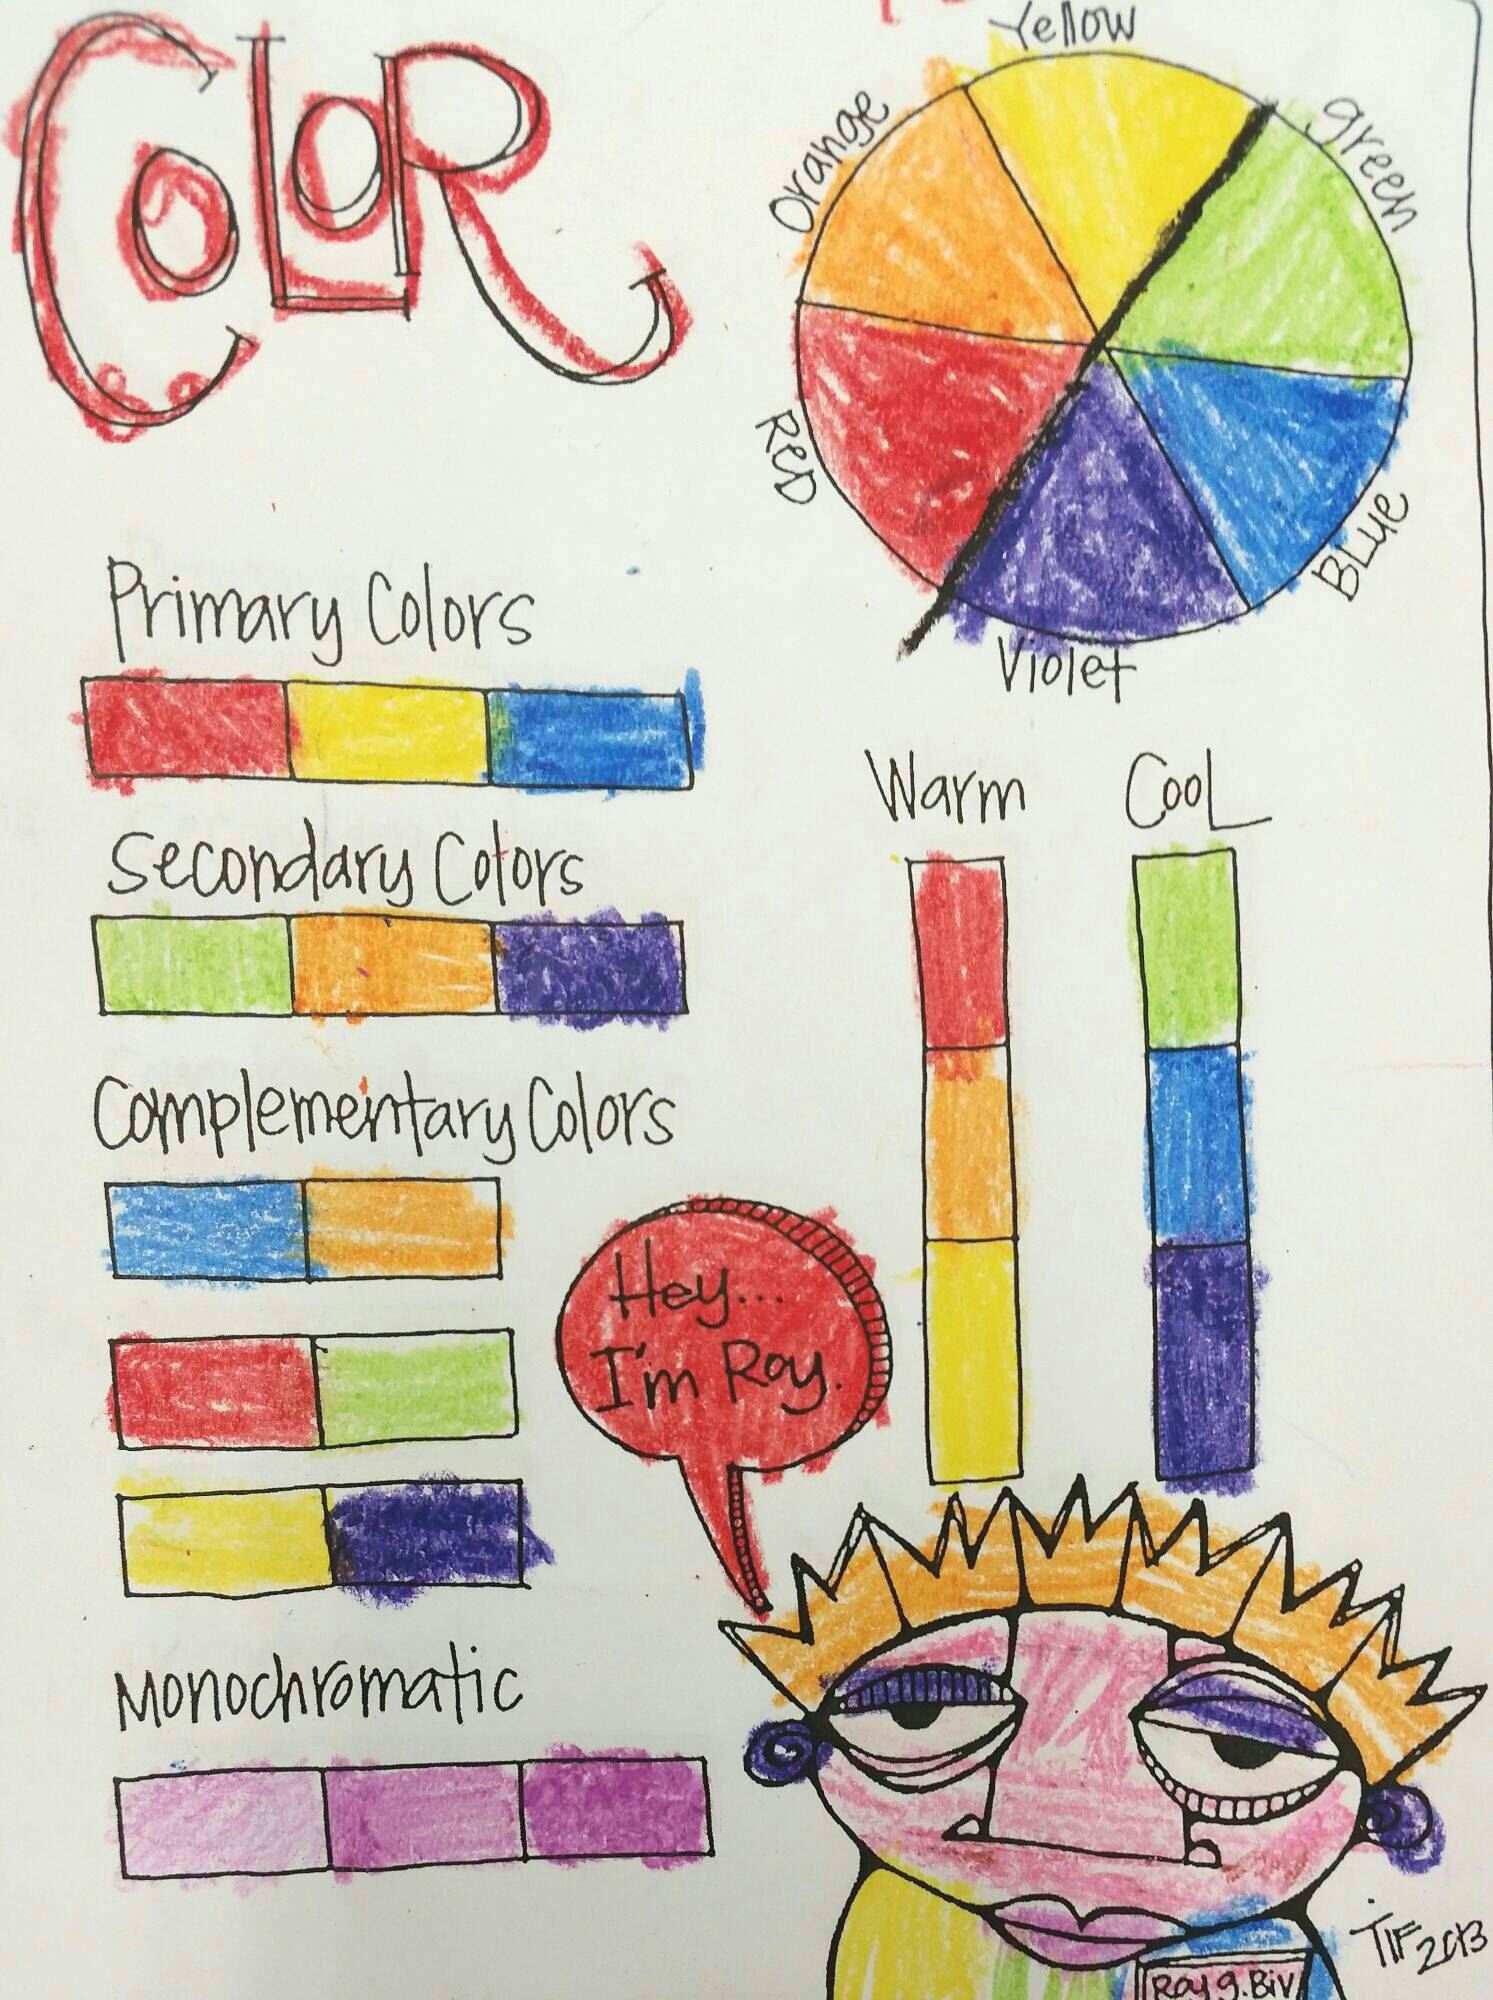 COLOR
Yellow
Orange
green
RED
BLue
Violet
Primary Colors
Secondary Colors
Complementary Colors
Monochromatic
Warm
CooL
Hey...
I'm Roy.
Roy g. Biv
TIF 2013